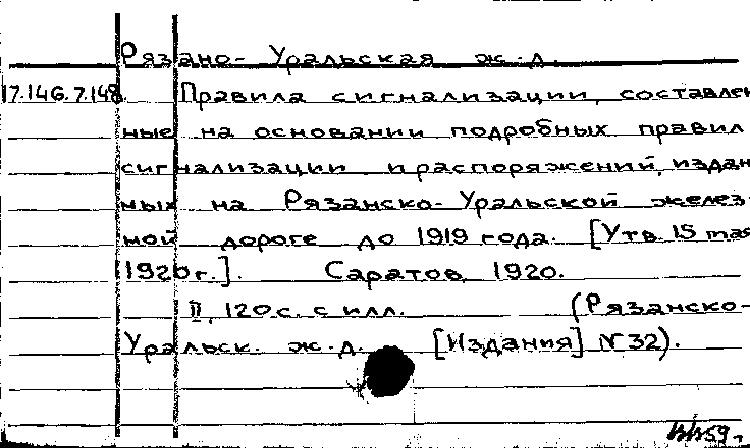 Рязано-Уральская ж.д.
17.146.7.148. Правила сигнализации, составлен
ные на основании подробных правил
сигнализации и распоряжений, издан
ных на Рязанско-Уральской желез-
ной дороге до 1919 года. [Утв. 15 мая
1920 г.]. Саратов, 1920.
II, 120 с. с илл. (Рязанско-
Уральск. ж.д. [Издания] № 32).